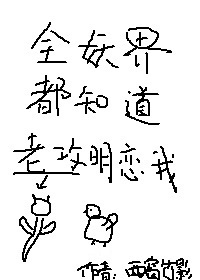 全妖界
都知道
老攻明恋我
作者：西窗竹影